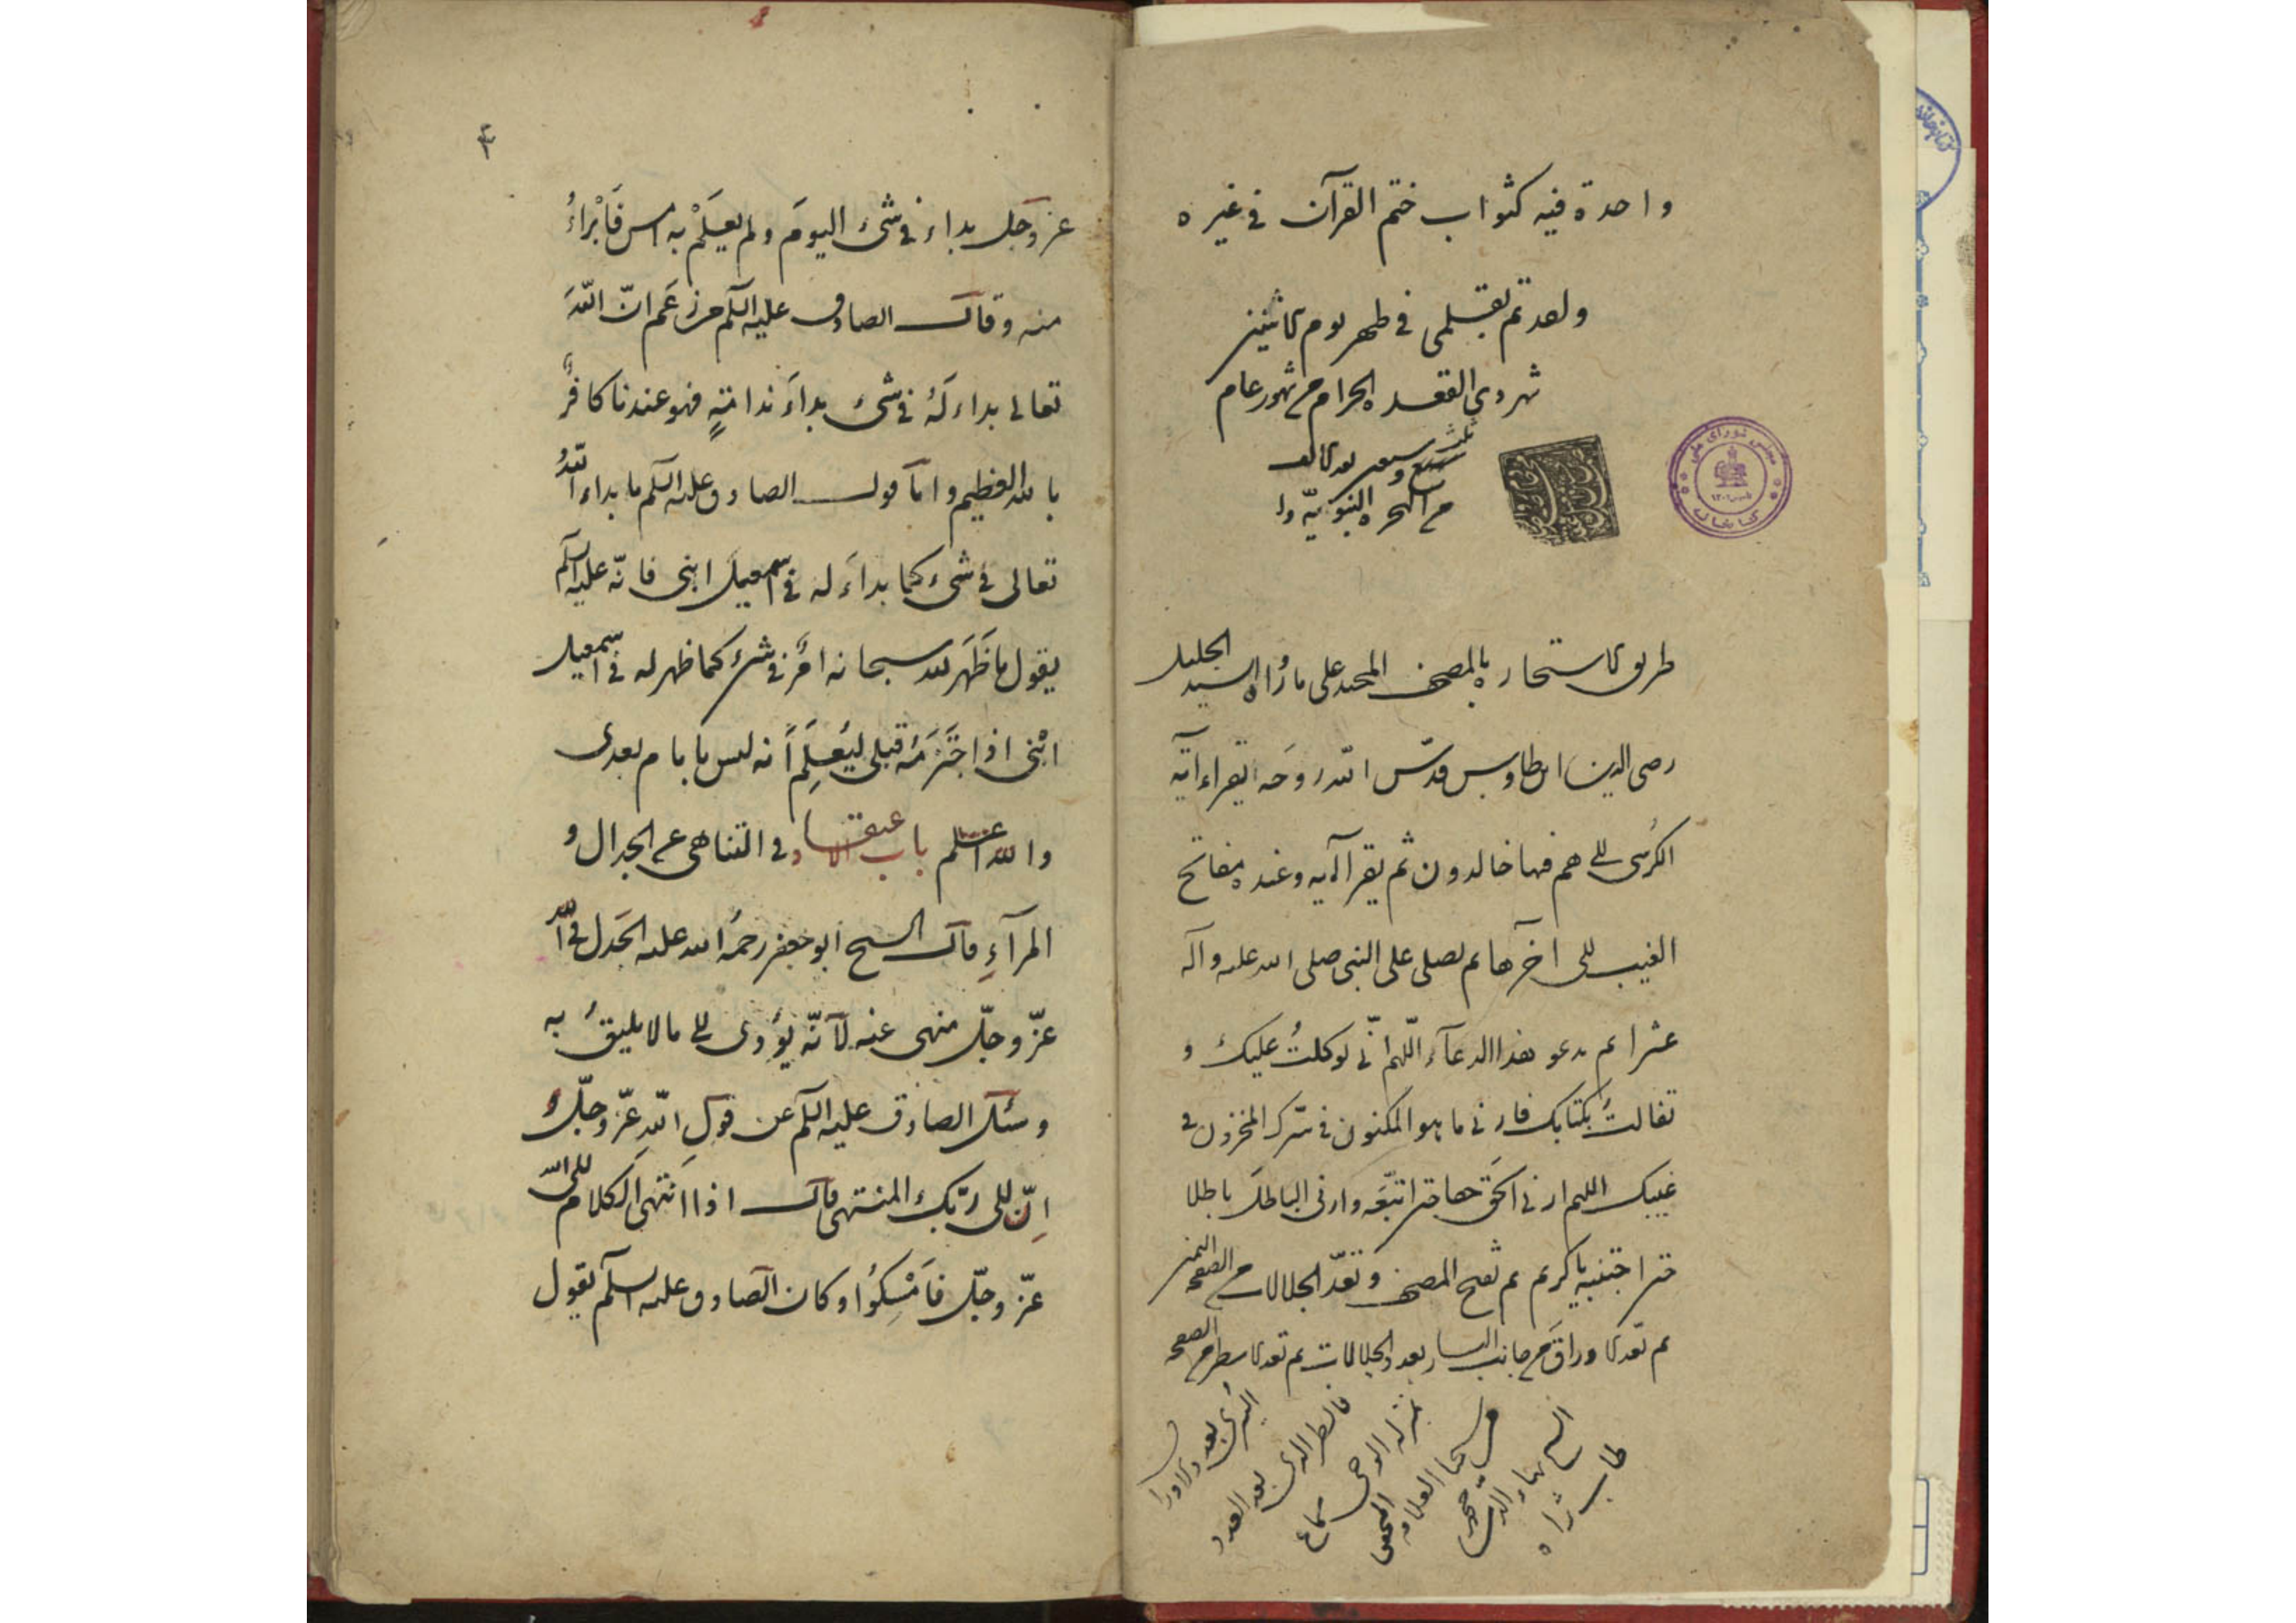 واحدة فيه كثواب ختم القرآن في غيره
ولقد تم بقلمي في ظهر يوم الاثنين
شهر ذي القعدة الحرام من شهور عام
ثلث
سبع وسبعين بعد الالف
من الهجرة النبوية
مجلس شورای ملی
کتابخانه
طريق الاستخارة بالمصحف المجيد على ما رواه السيد الجليل
رضي الدين ابن طاوس قدّس الله روحَه يقراء آية
الكرسي الى هم فيها خالدون ثم يقرا آلايه وعنده مفاتح
الغيب الى آخرها ثم يصلي على النبي صلى الله عليه وآله
عشرا ثم يدعو بهذا الدعآء اللّهم انّي توكلتُ عليك و
تفالتُ بكتابك فارني ما هو المكنون في سّرك المخزون في
غيبك اللهم ارني الحَق حقا حتى اتبعَه وارني الباطلَ باطلا
حتى اجتنبه ياكريم ثم تفتح المصحف وتعدّ الجلالات من الصفحة اليمنى
ثم تعد الاوراقَ من جانب اليسار بعدد الجلالات ثم تعد الاسطر من الصفحة
اليسرى بعدد الاوراق
فالسطر الذي بعد العدد
بمنزلة الوحي سماع
من شيخنا العلامة المحقق
الشيخ بهاء الدين محمد
طاب ثراه
٤
عز وجَل بداء في شيءٍ اليومَ ولم يعلَمْ به امس فَابْراءُ
منه وقال الصادق عليه السّلم من زعَم انّ اللّهَ
تعالى بداء لَهُ في شيءٍ بداءَ ندامَةٍ فهو عندنا كافرٌ
بالله العظيم وامّا قول الصادق عليه السّلم ما بداء اللّهُ
تعالى في شيءٍ كما بداءَ له في اسمعيلَ ابني فانّه عليه السّلم
يقول ما ظَهَر لله سبحانه امرٌ في شيءٍ كما ظهر له في اسمعيل
ابْني اذا اختَرَمَهُ قبلي ليُعلِمَ اَنه ليس بامام بعدى
والله اعلم باب الاعتقاد في التناهى عن الجدال و
المرآءِ قال الشيخ ابو جعفر رحمَة الله عليه الجَدل في الله
عزّ وجلّ منهى عنه لاَنّه يُؤدى الى ما لا يليقُ به
وسُئل الصادق عليه السّلم عن قولِ اللّهِ عزّ وجلّ و
اِنّ الى ربّك المنتهى قال اذا اَنتهىَ الكلام الى الله
عزّ وجلّ فاَمْسِكُوا وكان الصادق عليه السلم يقول